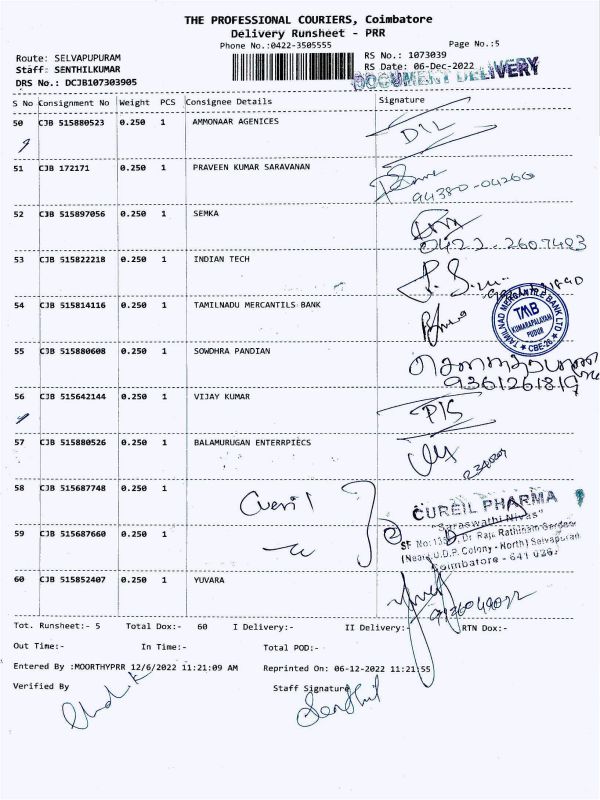 THE PROFESSIONAL COURIERS, Coimbatore
Delivery Runsheet - PRR
Phone No.:0422-3505555 Page No.:5
Route: SELVAPUPURAM RS No.: 1073039
Staff: SENTHILKUMAR RS Date: 06-Dec-2022
DRS No.: DCJB107303905 DOCUMENT DELIVERY
S No Consignment No Weight PCS Consignee Details Signature
50 CJB 515880523 0.250 1 AMMONAAR AGENICES
D/L
51 CJB 172171 0.250 1 PRAVEEN KUMAR SARAVANAN
94380-04266
52 CJB 515897056 0.250 1 SEMKA
0422-2607483
53 CJB 515822218 0.250 1 INDIAN TECH
54 CJB 515814116 0.250 1 TAMILNADU MERCANTILS BANK
TAMILNAD MERCANTILE BANK LTD
TMB
KUMARAPALAYAM
PUDUR
CBE-26
55 CJB 515880608 0.250 1 SOWDHRA PANDIAN
9361261819
56 CJB 515642144 0.250 1 VIJAY KUMAR
P/S
57 CJB 515880526 0.250 1 BALAMURUGAN ENTERRPIECS
58 CJB 515687748 0.250 1
Cureil
CUREIL PHARMA
"Saraswathi Nivas"
59 CJB 515687660 0.250 1
2
Dr. Raja Rathinam Garden
(Near U.D.P. Colony - North) Selvapuram
Coimbatore - 641 026.
60 CJB 515852407 0.250 1 YUVARA
Tot. Runsheet:- 5 Total Dox:- 60 I Delivery:- II Delivery:- RTN Dox:-
Out Time:- In Time:- Total POD:-
Entered By :MOORTHYPRR 12/6/2022 11:21:09 AM Reprinted On: 06-12-2022 11:21:55
Verified By Staff Signature
Senthil